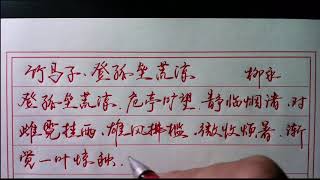 竹马子·登孤垒荒凉 柳永
登孤垒荒凉，危亭旷望，静临烟渚。对
雌霓挂雨，雄风拂槛，微收烦暑。渐
觉一叶惊秋，